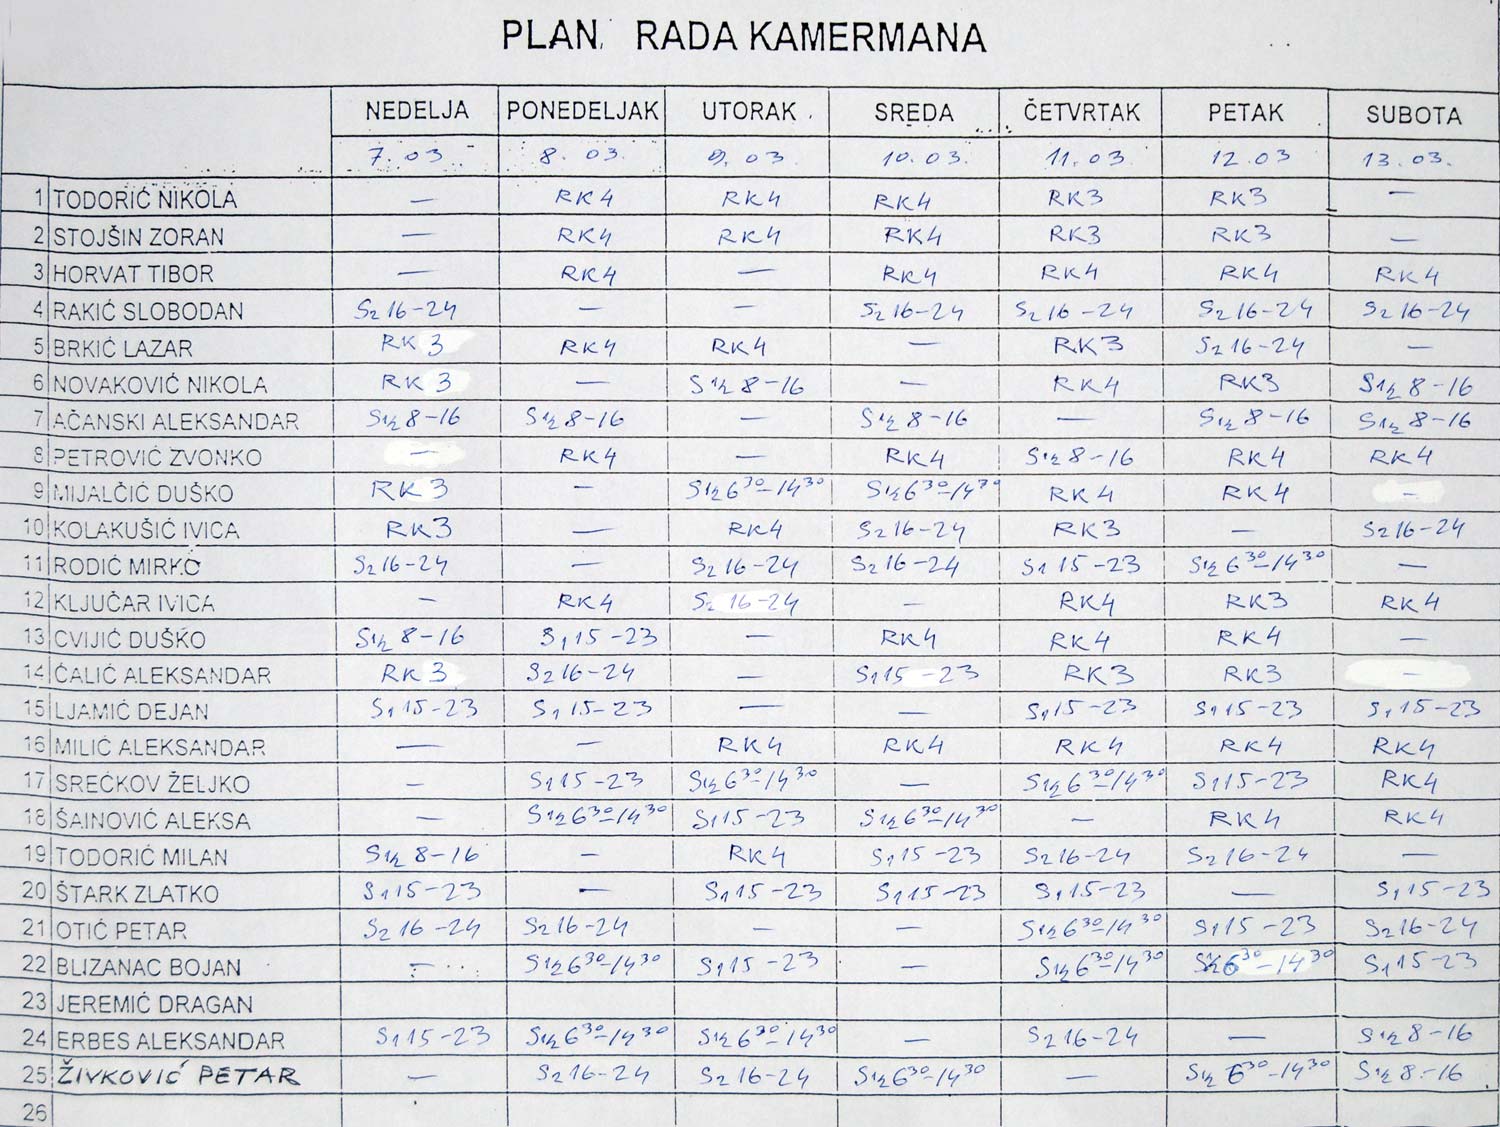 PLAN RADA KAMERMANA
NEDELJA PONEDELJAK UTORAK SREDA ČETVRTAK PETAK SUBOTA
7.03. 8.03. 9.03. 10.03. 11.03 12.03 13.03.
1 TODORIĆ NIKOLA — RK4 RK4 RK4 RK3 RK3 —
2 STOJŠIN ZORAN — RK4 RK4 RK4 RK3 RK3 —
3 HORVAT TIBOR — RK4 — RK4 RK4 RK4 RK4
4 RAKIĆ SLOBODAN S2 16-24 — — S2 16-24 S2 16-24 S2 16-24 S2 16-24
5 BRKIĆ LAZAR RK3 RK4 RK4 — RK3 S2 16-24 —
6 NOVAKOVIĆ NIKOLA RK3 — S1/2 8-16 — RK4 RK3 S1/2 8-16
7 AČANSKI ALEKSANDAR S1/2 8-16 S1/2 8-16 — S1/2 8-16 — S1/2 8-16 S1/2 8-16
8 PETROVIĆ ZVONKO — RK4 — RK4 S1/2 8-16 RK4 RK4
9 MIJALČIĆ DUŠKO RK3 — S1/2 6³⁰-14³⁰ S1/2 6³⁰-14³⁰ RK4 RK4 —
10 KOLAKUŠIĆ IVICA RK3 — RK4 S2 16-24 RK3 — S2 16-24
11 RODIĆ MIRKO S2 16-24 — S2 16-24 S2 16-24 S1 15-23 S1/2 6³⁰-14³⁰ —
12 KLJUČAR IVICA — RK4 S2 16-24 — RK4 RK3 RK4
13 CVIJIĆ DUŠKO S1/2 8-16 S1 15-23 — RK4 RK4 RK4 —
14 ĆALIĆ ALEKSANDAR RK3 S2 16-24 — S1 15-23 RK3 RK3 —
15 LJAMIĆ DEJAN S1 15-23 S1 15-23 — — S1 15-23 S1 15-23 S1 15-23
16 MILIĆ ALEKSANDAR — — RK4 RK4 RK4 RK4 RK4
17 SREĆKOV ŽELJKO — S1 15-23 S1/2 6³⁰-14³⁰ — S1/2 6³⁰-14³⁰ S1 15-23 RK4
18 ŠAINOVIĆ ALEKSA — S1/2 6³⁰-14³⁰ S1 15-23 S1/2 6³⁰-14³⁰ — RK4 RK4
19 TODORIĆ MILAN S1/2 8-16 — RK4 S1 15-23 S2 16-24 S2 16-24 —
20 ŠTARK ZLATKO S1 15-23 — S1 15-23 S1 15-23 S1 15-23 — S1 15-23
21 OTIĆ PETAR S2 16-24 S2 16-24 — — S1/2 6³⁰-14³⁰ S1 15-23 S2 16-24
22 BLIZANAC BOJAN — S1/2 6³⁰-14³⁰ S1 15-23 — S1/2 6³⁰-14³⁰ S1/2 6³⁰-14³⁰ S1 15-23
23 JEREMIĆ DRAGAN
24 ERBES ALEKSANDAR S1 15-23 S1/2 6³⁰-14³⁰ S1/2 6³⁰-14³⁰ — S2 16-24 — S1/2 8-16
25 ŽIVKOVIĆ PETAR — S2 16-24 S2 16-24 S1/2 6³⁰-14³⁰ — S1/2 6³⁰-14³⁰ S1/2 8-16
26